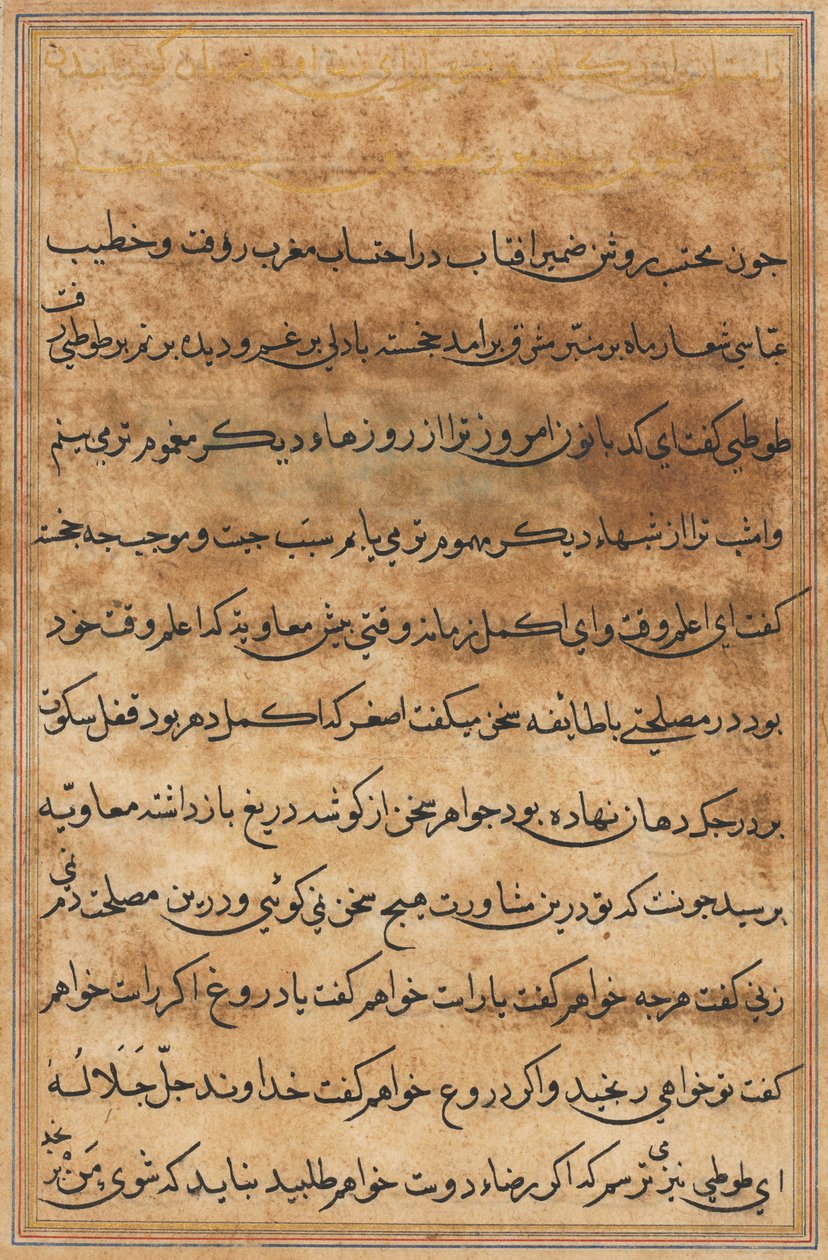 جون محتسب روشن ضمیر افتاب در احتساب مغرب رؤفت و خطیب
عبّاسی شعار ماه بر منبّر مشرق برامد خجسته بادلی بر غم و دیده بر نم بر طوطی رفت
طوطی کفت ای کد بانو ن امروز ترا از روزهاء دیکر مغموم تر می بینم
وامشب ترا از شبهاء دیکر مهموم تر می یابم سبَب جیت و موجب جه خجسته
کفت ای اعلم وقت و ای اکمل زمان وقتی بیش معاویه که اعلم وقت خود
بود در مصلحتی با طایٔفه سخن میکفت اصغر که اکمل دهر بود قفل سکوت
بر درجک دهان نهاده بود جواهر سخن از کوشه دریغ بازداشته معاویّه
برسید جونست که تو درین مشاورت هیج سخن نی کوئی و درین مصلحت دم نی
زنی کفت هرجه خواهم کفت یا راست خواهم کفت یا دروغ اکر راست خواهم
کفت تو خواهی رنجید و اکر دروغ خواهم کفت خداوند جلّ جَلَالُهُ
ای طوطی نیز می ترسم که اکر رضاء دوست خواهم طلبید بناید که شوی مَنْ برنجد